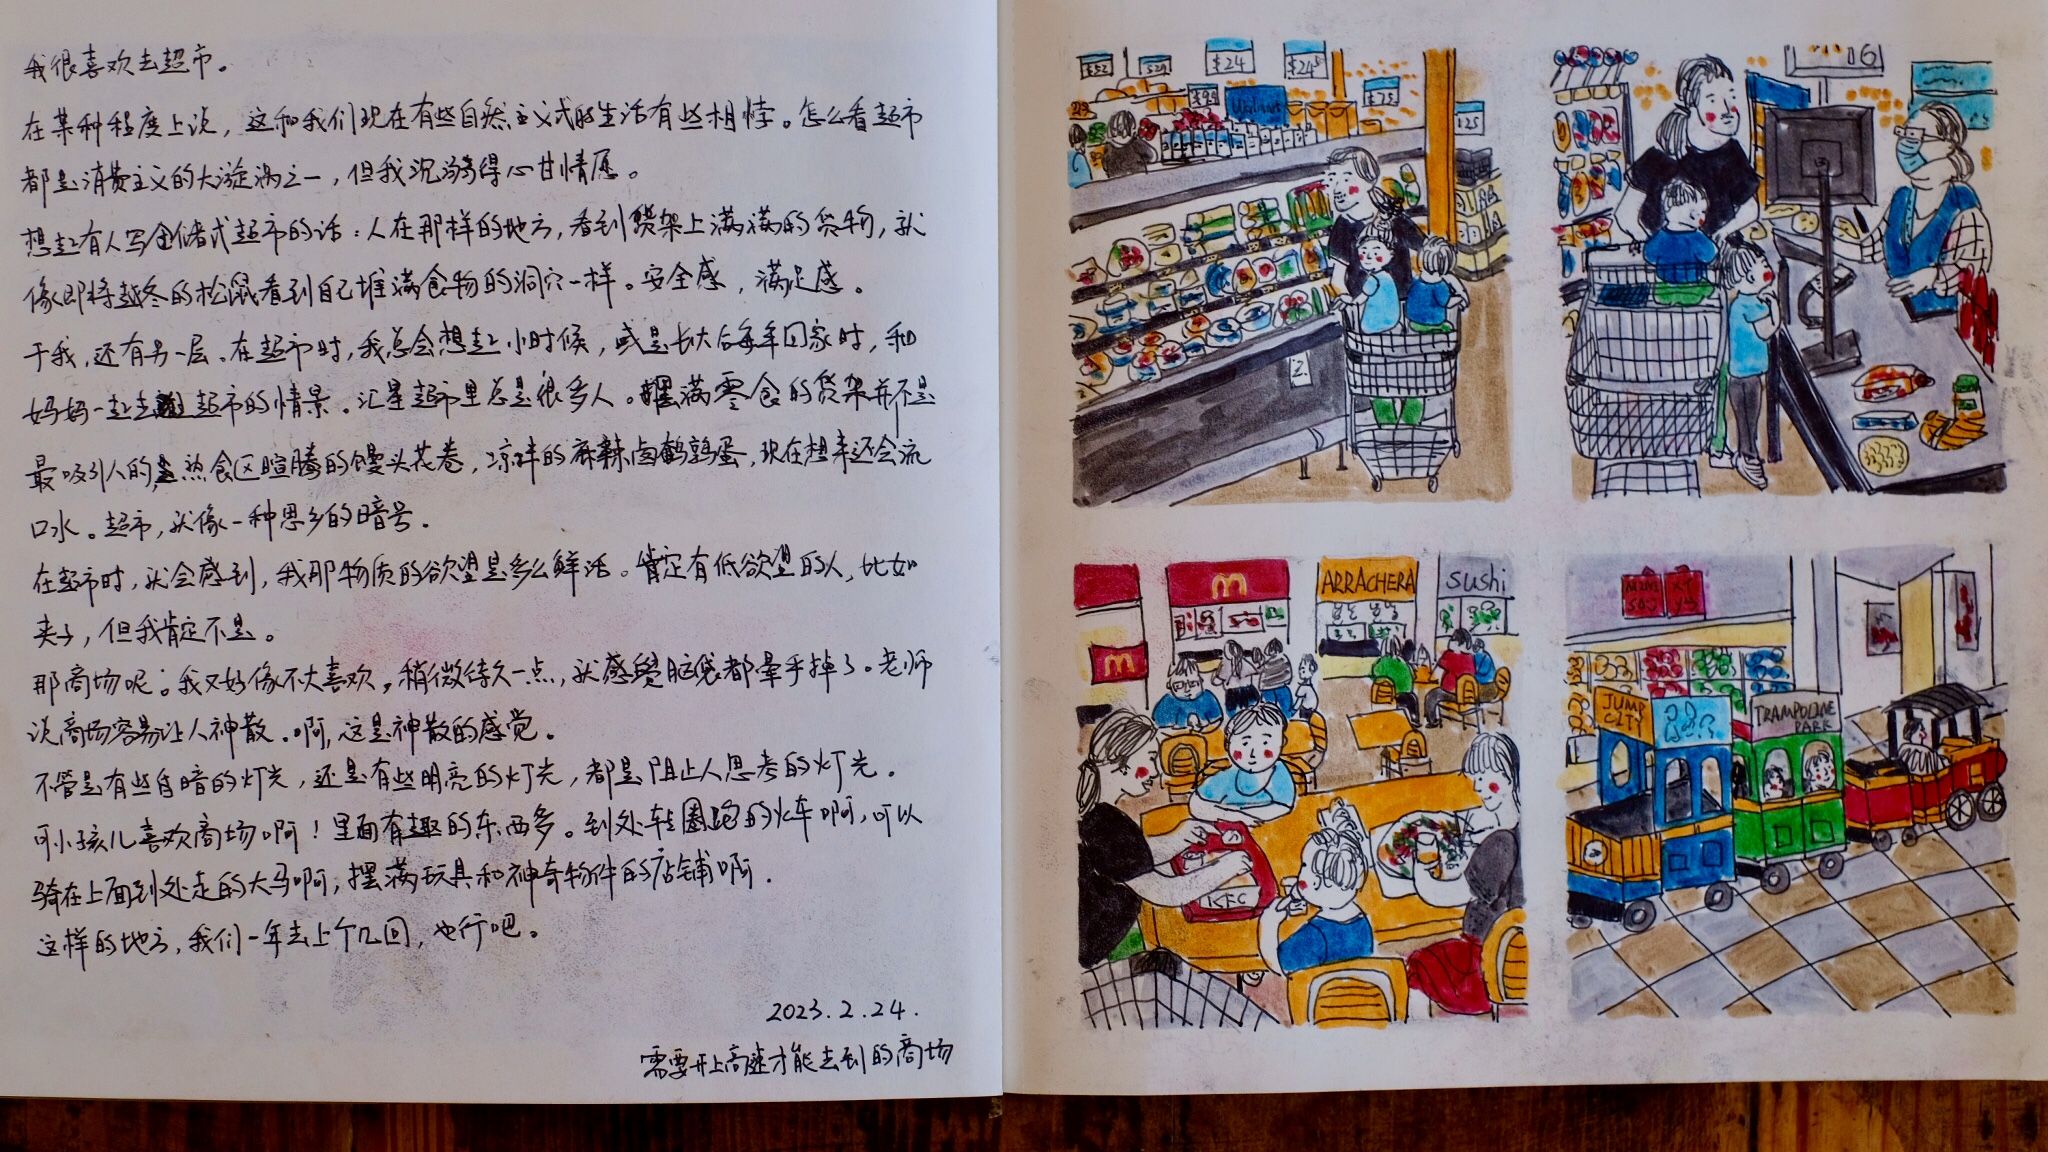 我很喜欢去超市。
在某种程度上说，这和我们现在有些自然主义式的生活有些相悖。怎么看超市
都是消费主义的大漩涡之一，但我沉溺得心甘情愿。
想起有人写仓储式超市的话：人在那样的地方，看到货架上满满的货物，就
像即将越冬的松鼠看到自己堆满食物的洞穴一样。安全感，满足感。
于我，还有另一层。在超市时，我总会想起小时候，或是长大后每年回家时，和
妈妈一起去超市的情景。汇星超市里总是很多人。摆满零食的货架并不是
最吸引人的，熟食区暄腾的馒头花卷，凉拌的麻辣卤鹌鹑蛋，现在想来还会流
口水。超市，就像一种思乡的暗号。
在超市时，就会感到，我那物质的欲望是多么鲜活。肯定有低欲望的人，比如
夫子，但我肯定不是。
那商场呢？我又好像不大喜欢，稍微待久一点，就感觉脑袋都晕乎掉了。老师
说商场容易让人神散。啊，这是神散的感觉。
不管是有些自暗的灯光，还是有些明亮的灯光，都是阻止人思考的灯光。
可小孩儿喜欢商场啊！里面有趣的东西多。到处转圈跑的火车啊，可以
骑在上面到处走的大马啊，摆满玩具和神奇物件的店铺啊.
这样的地方，我们一年去上个几回，也行吧。
2023.2.24.
需要开上高速才能去到的商场
$52
$24
$24
$99
$75
$25
Walmart
2.
06
M
ARRACHERA
sushi
M
KFC
JUMP
CITY
TRAMPOLINE
PARK